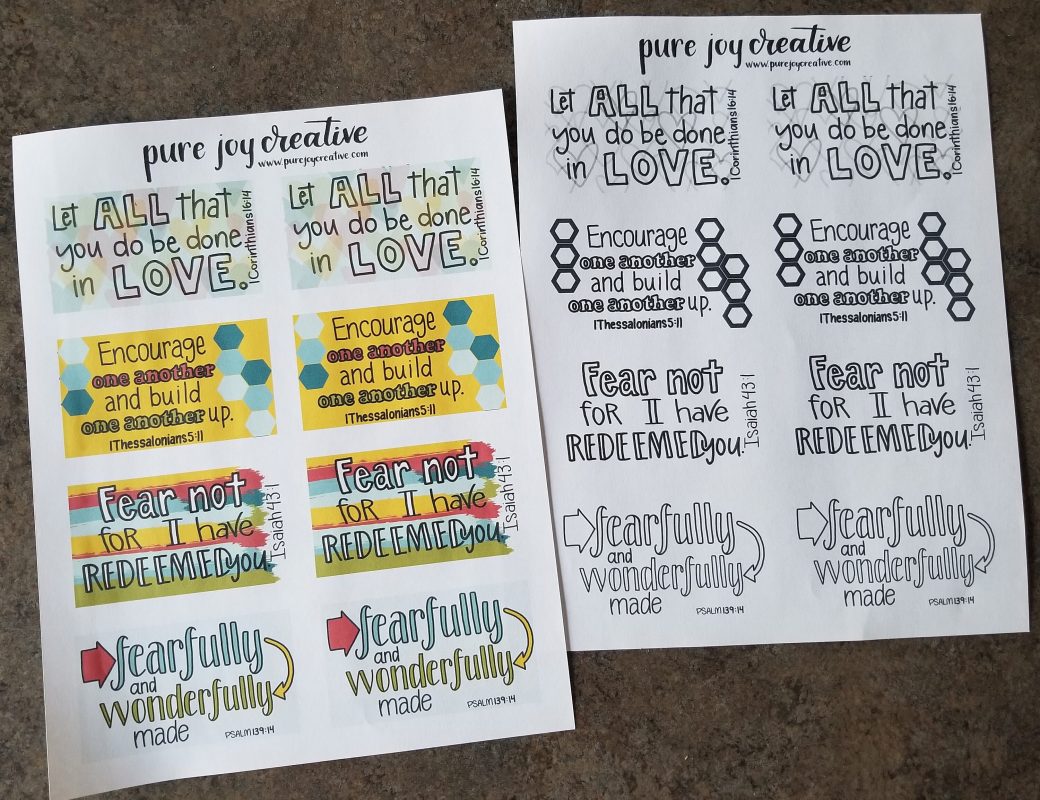 pure joy creative
www.purejoycreative.com
Let ALL that
you do be done
in LOVE.
1Corinthians16:14
Let ALL that
you do be done
in LOVE.
1Corinthians16:14
Encourage
one another
and build
one another up.
1Thessalonians5:11
Encourage
one another
and build
one another up.
1Thessalonians5:11
Fear not
for I have
REDEEMED you.
Isaiah43:1
Fear not
for I have
REDEEMED you.
Isaiah43:1
fearfully
and
wonderfully
made
PSALM139:14
fearfully
and
wonderfully
made
PSALM139:14
pure joy creative
www.purejoycreative.com
Let ALL that
you do be done
in LOVE.
1Corinthians16:14
Let ALL that
you do be done
in LOVE.
1Corinthians16:14
Encourage
one another
and build
one another up.
1Thessalonians5:11
Encourage
one another
and build
one another up.
1Thessalonians5:11
Fear not
for I have
REDEEMED you.
Isaiah43:1
Fear not
for I have
REDEEMED you.
Isaiah43:1
fearfully
and
wonderfully
made
PSALM139:14
fearfully
and
wonderfully
made
PSALM139:14